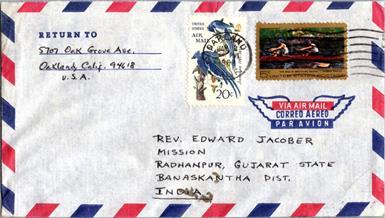 RETURN TO
5707 Oak Grove Ave.
Oakland Calif. 94618
U.S.A.
UNITED STATES
AIR MAIL
20c
VIA AIR MAIL
CORREO AEREO
PAR AVION
REV. EDWARD JACOBER
MISSION
RADHANPUR, GUJARAT STATE
BANASKANTHA DIST.
INDIA